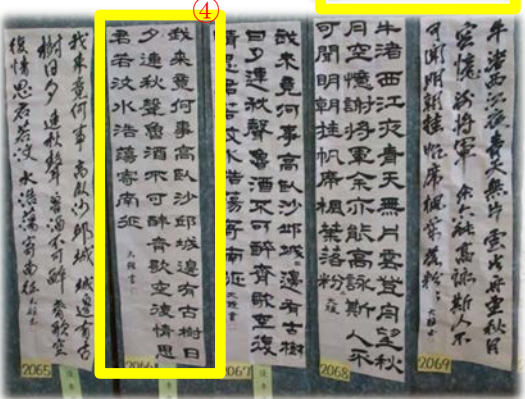 ④
我來竟何事高臥沙邱城城邊有古
樹日夕連秋聲魯酒不可醉齊歌空
復情思君若汶水浩蕩寄南征
2065
我來竟何事高臥沙邱城邊有古樹日
夕連秋聲魯酒不可醉齊歌空復情思
君若汶水浩蕩寄南征
2066
我來竟何事高臥沙邱城邊有古樹
日夕連秋聲魯酒不可醉齊歌空復
情思君若汶水浩蕩寄南征
2067
牛渚西江夜青天無片雲登舟望秋
月空憶謝將軍余亦能高詠斯人不
可聞明朝挂帆席楓葉落粉
2068
牛渚西江夜青天無片雲登舟望秋月
空憶謝將軍余亦能高詠斯人不
可聞明朝挂帆席楓葉落粉
2069